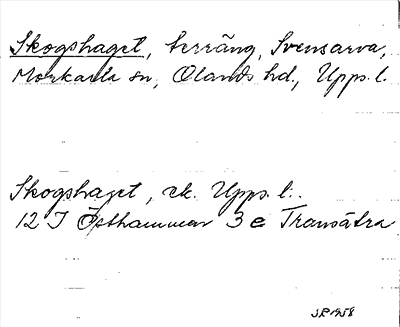 Skogshaget, terräng, Svensarva,
Morkarla sn, Olands hd, Upps. l.
Skogshaget, ek. Upps. l.
12 I Östhammar 3 e Transätra
1958